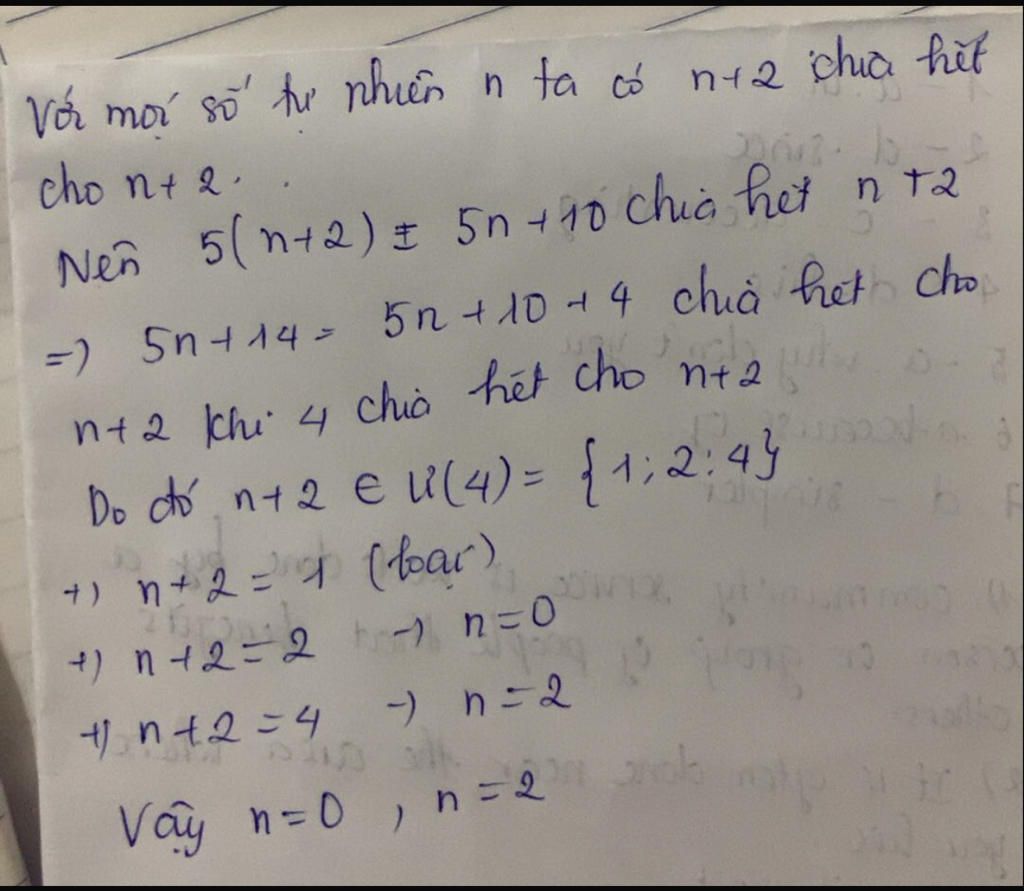 Với mọi số tự nhiên n ta có n+2 chia hết
cho n+2.
Nên 5(n+2) = 5n+10 chia hết n+2
=> 5n+14 = 5n+10+4 chia hết cho
n+2 khi 4 chia hết cho n+2
Do đó n+2 ∈ Ư(4) = {1; 2; 4}
+) n+2 = 1 (loại)
+) n+2 = 2 -> n=0
+) n+2 = 4 -> n=2
Vậy n=0, n=2